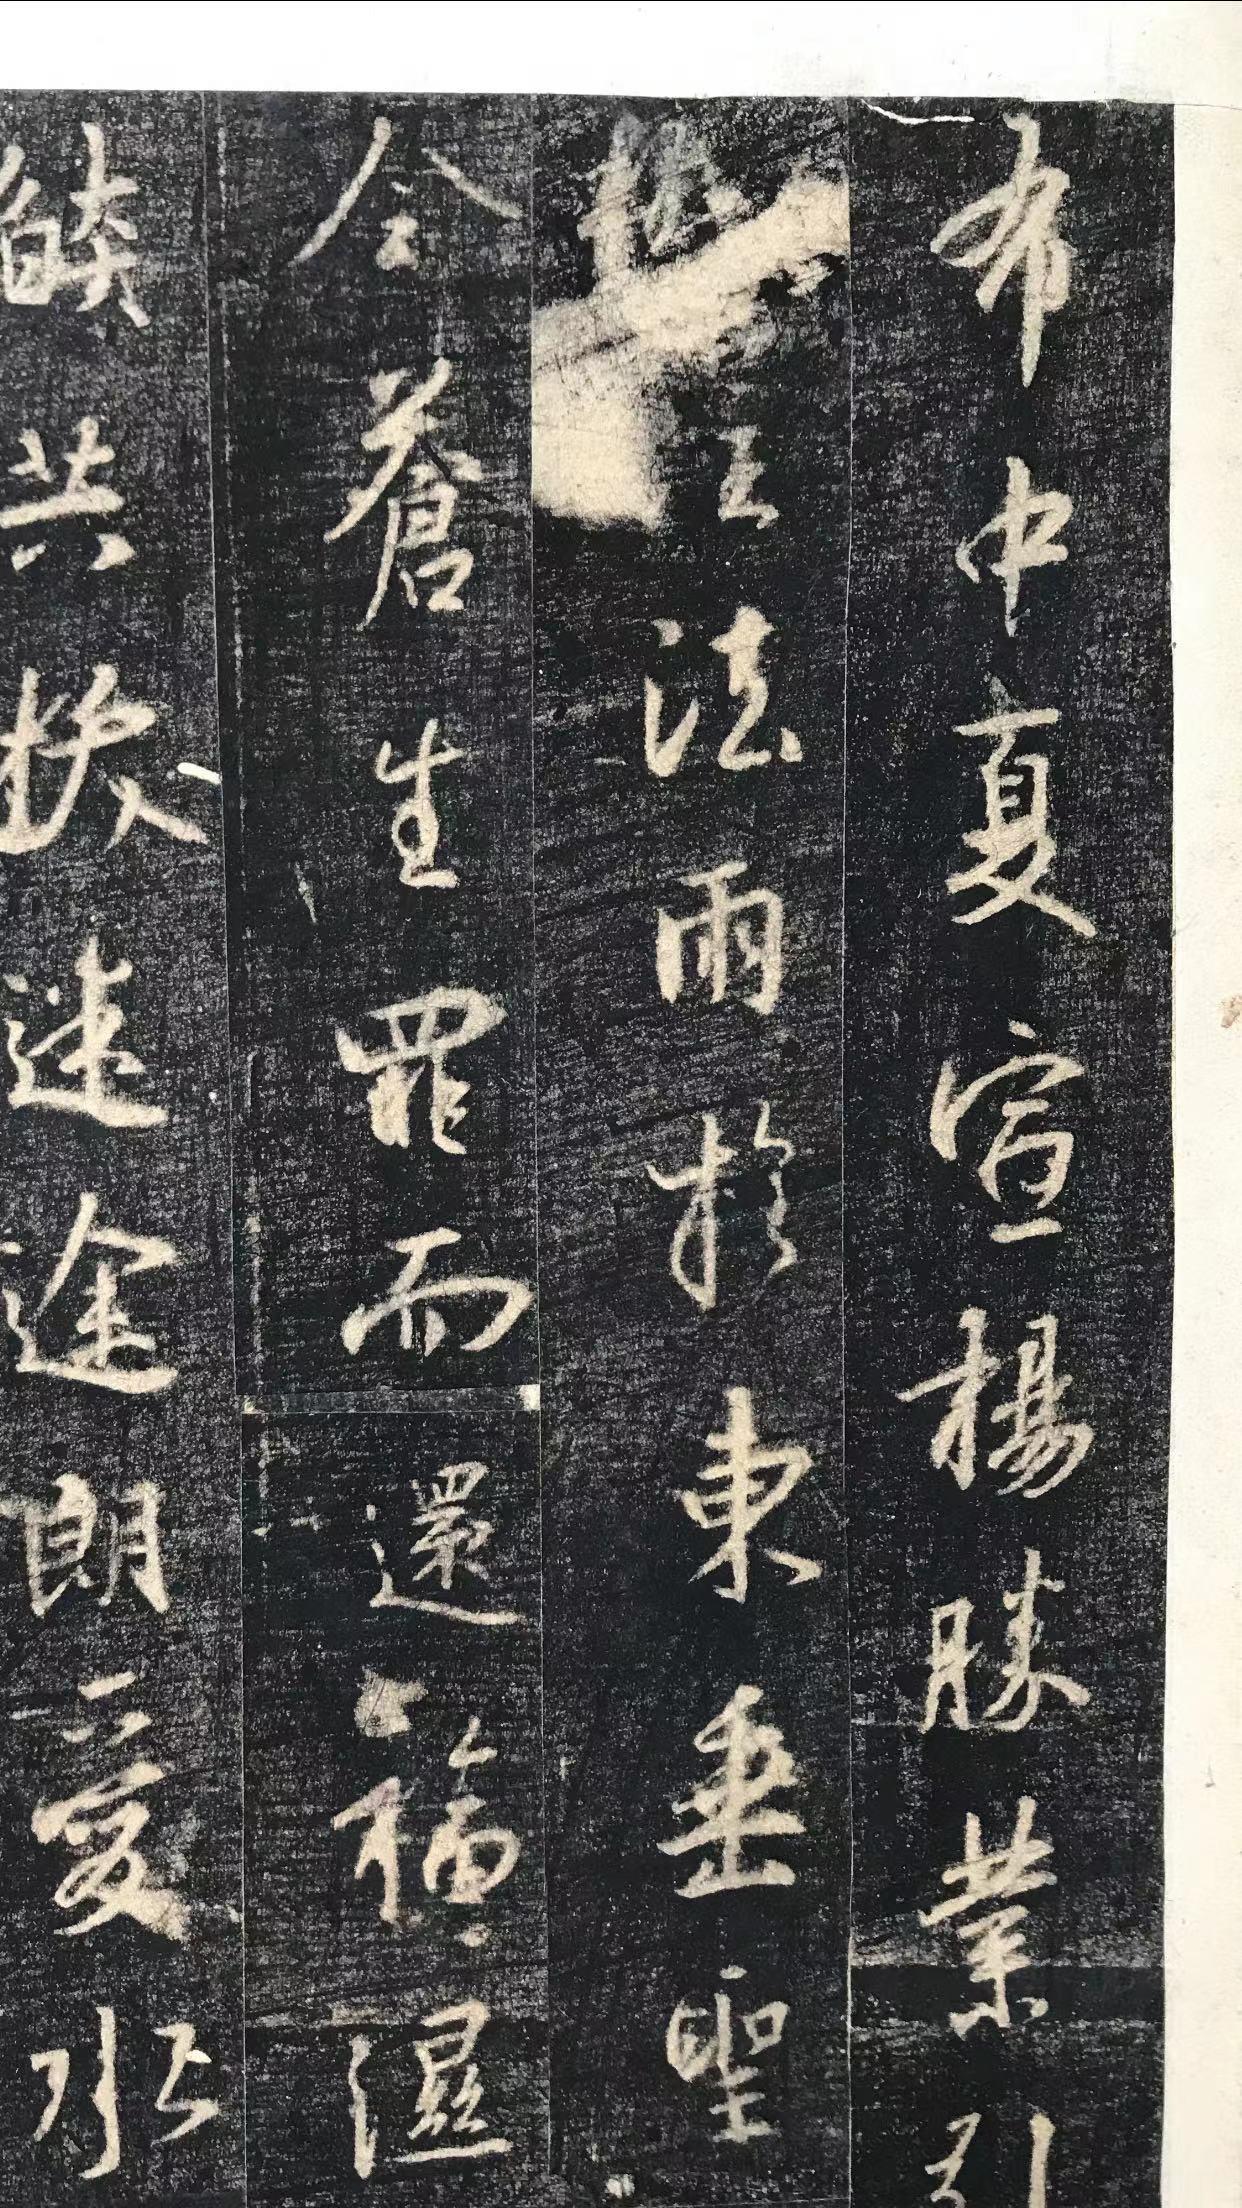 布中夏宣揚勝業引
法雨於東垂聖
全蒼生罪而還福濕
燄共拔迷途朗愛水